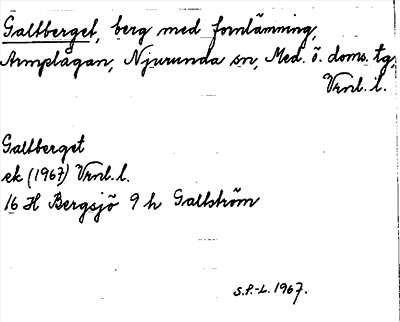 Galtberget, berg med fornlämning,
Armplågan, Njurunda sn, Med. ö. doms. tg,
Vrnl. l.
Galtberget
ek (1967) Vrnl. l.
16 H Bergsjö 9 h Galtström
S.P.-L. 1967.